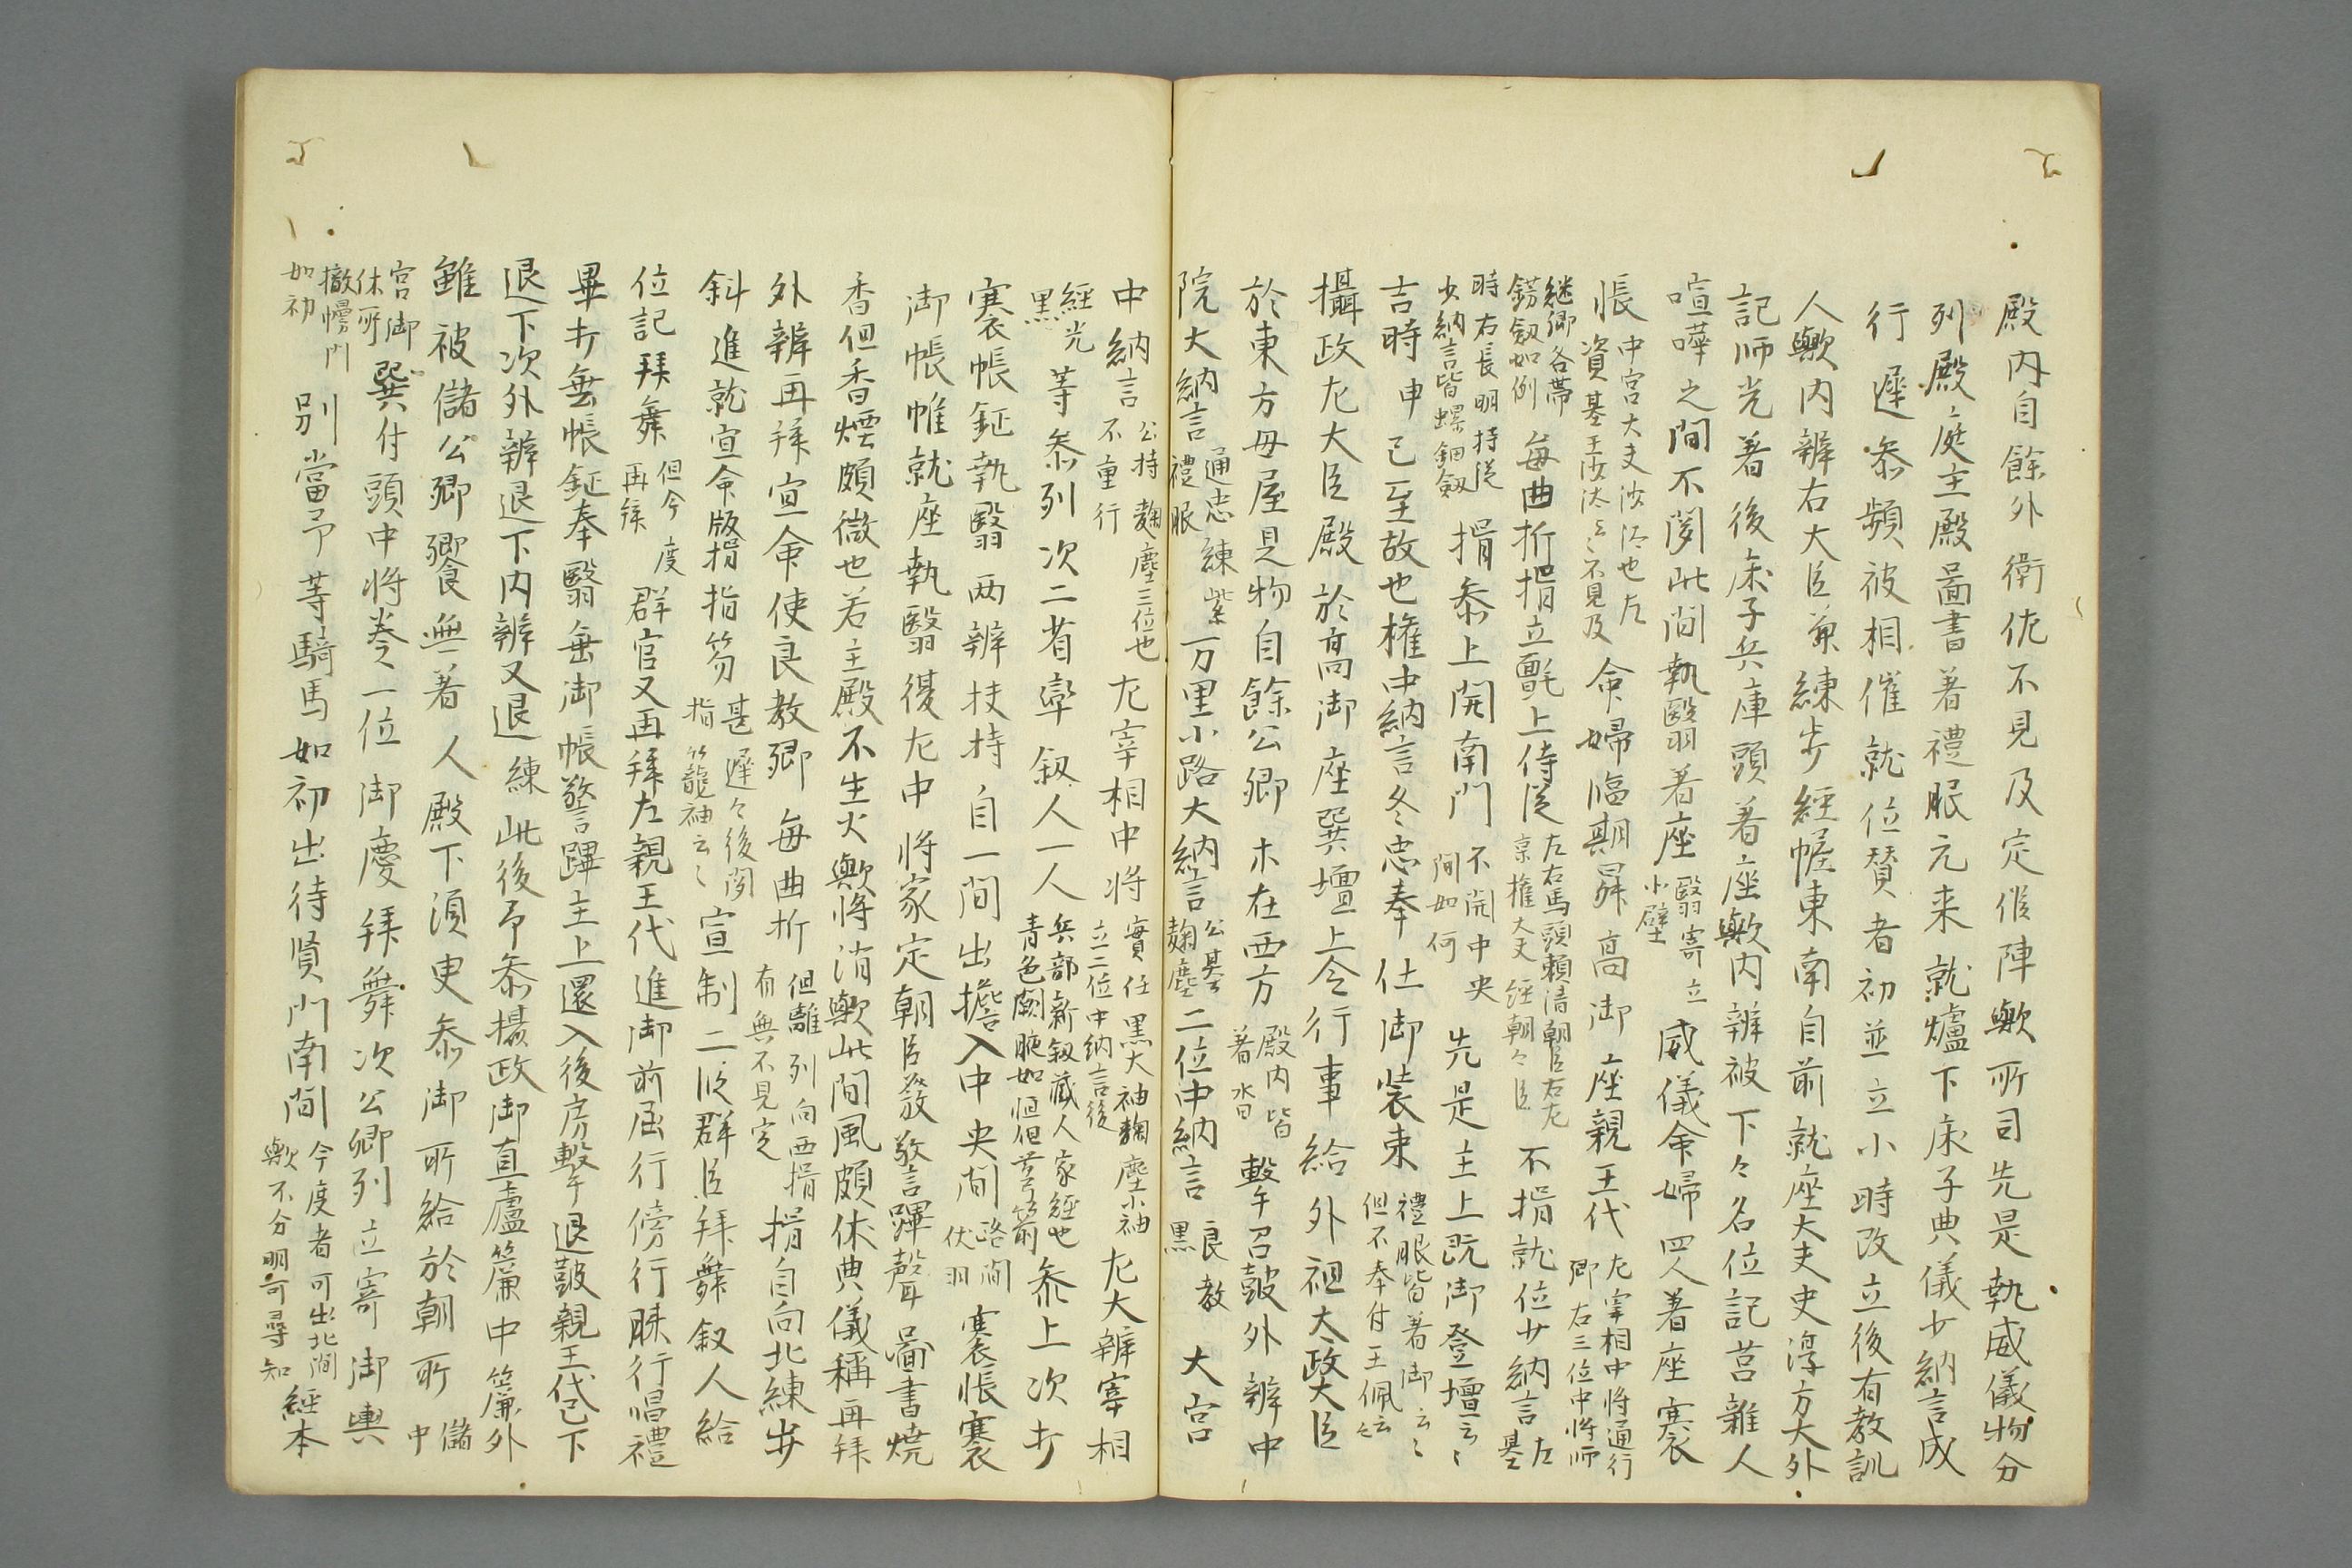 殿内自餘外衛佐不見及定候陣歟所司先是執威儀物分
列殿庭主殿圖書着禮服元来就爐下床子典儀少納言成
行遲参頻被相催就位賛者初並立小時改立後有教訓
人歟内辨右大臣兼練歩經幄東南自前就座大夫史淳方大外
記師光着後床子兵庫頭着座歟内辨被下々名位記莒雜人
喧嘩之間不聞此間執翳着座翳寄立小壁威儀命婦四人着座褰
帳中宮大夫 也左資基王女 云々不見及命婦臨期昇高御座親王代左宰相中将通行卿右三位中将師
継卿各帯鐒劔如例毎曲折揖立氈上侍従左右馬頭頼清朝臣右左京権大夫経朝々臣不揖就位少納言左基
時右長明持従少納言皆螺鈿劔揖参上開南門不開中央間如何先是主上既御登壇云々
吉時申已至故也権中納言冬忠奉仕御装束禮服皆著御云々但不奉付玉佩云々
攝政左大臣殿於高御座巽壇上令行事給外祖太政大臣
於東方母屋見物自餘公卿 在西方殿内皆著沓撃召鼓外辨中
院大納言通忠練紫禮服万里小路大納言公基麹塵二位中納言良教黒大宮
中納言公持麹塵三位也不重行左宰相中将實任黒大袖麹塵小袖立二位中納言後左大辨宰相
經光黒等参列次二省率叙人一人兵部新叙蔵人家経也青色闕腋如恒但 箭参上次才
褰帳鉦執翳両辨扶持自一間出擔入中央間路間伏羽褰帳褰
御帳帷就座執翳復左中将家定朝臣發警蹕聲圖書焼
香但香煙頗微也若主殿不生火歟将消歟此間風頗休典儀稱再拜
外辨再拜宣命使良教卿毎曲折但離列向西揖有無不見定揖自向北練歩
斜進就宣命版揖指笏甚遲々後聞指笏籠袖云々宣制二段群臣拜舞叙人給
位記拜舞但今度再拜群官又再拜左親王代進御前屈行傍行膝行唱禮
畢才無帳鉦奉翳垂御帳警蹕主上還入後房撃退鼓親王代已下
退下次外辨退下内辨又退練此後予参攝政御直廬簾中簾外
雖被儲公卿饗無着人殿下須史参御所給於朝所儲中
宮御休所巽付頭中将奏一位御慶拜舞次公卿列立寄御輿
撤幔門如初別當予等騎馬如初出待賢門南間今度者可出北間歟不分明可尋知經本